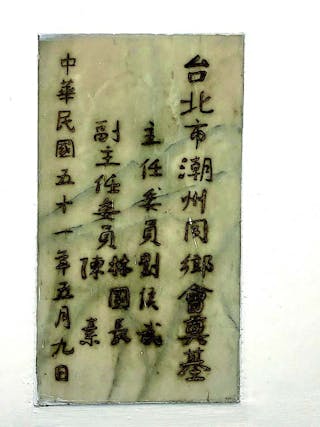 台北市潮州同鄉會奠基
主任委員劉侯武
副主任委員林國長
陳素
中華民國五十一年五月九日